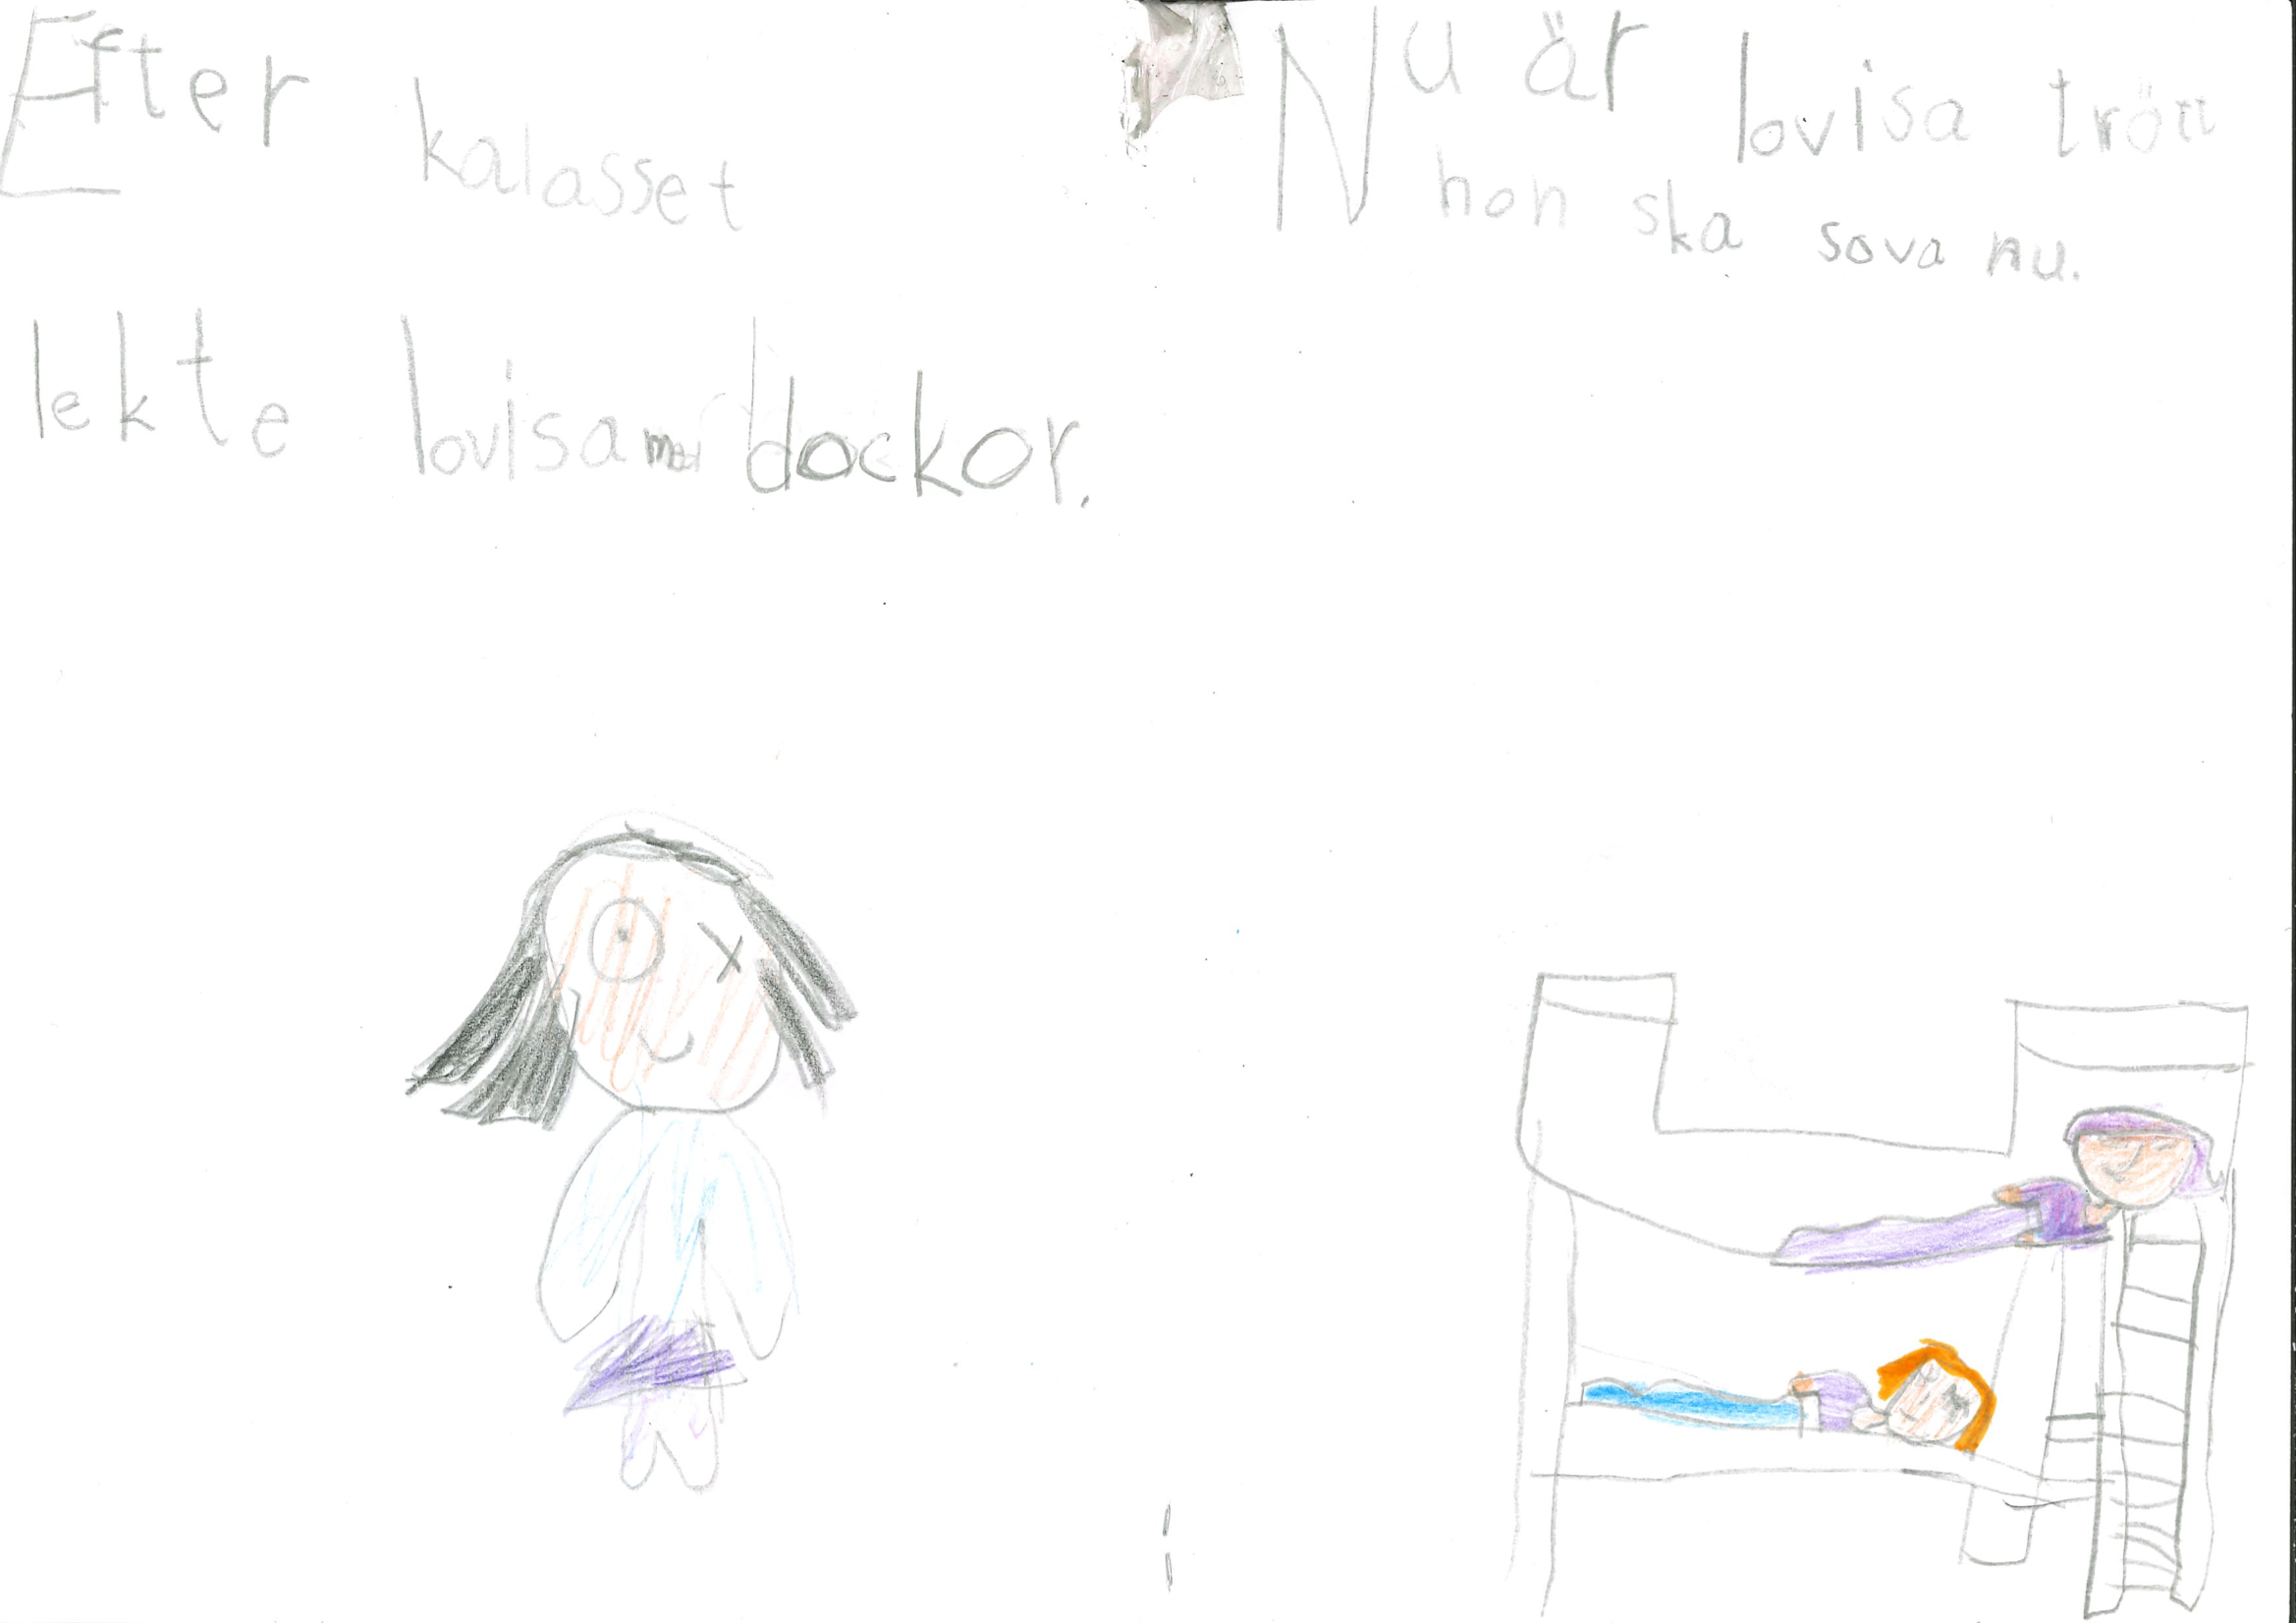 Efter kalasset
lekte lovisa med dockor.
Nu är lovisa trött
hon ska sova nu.